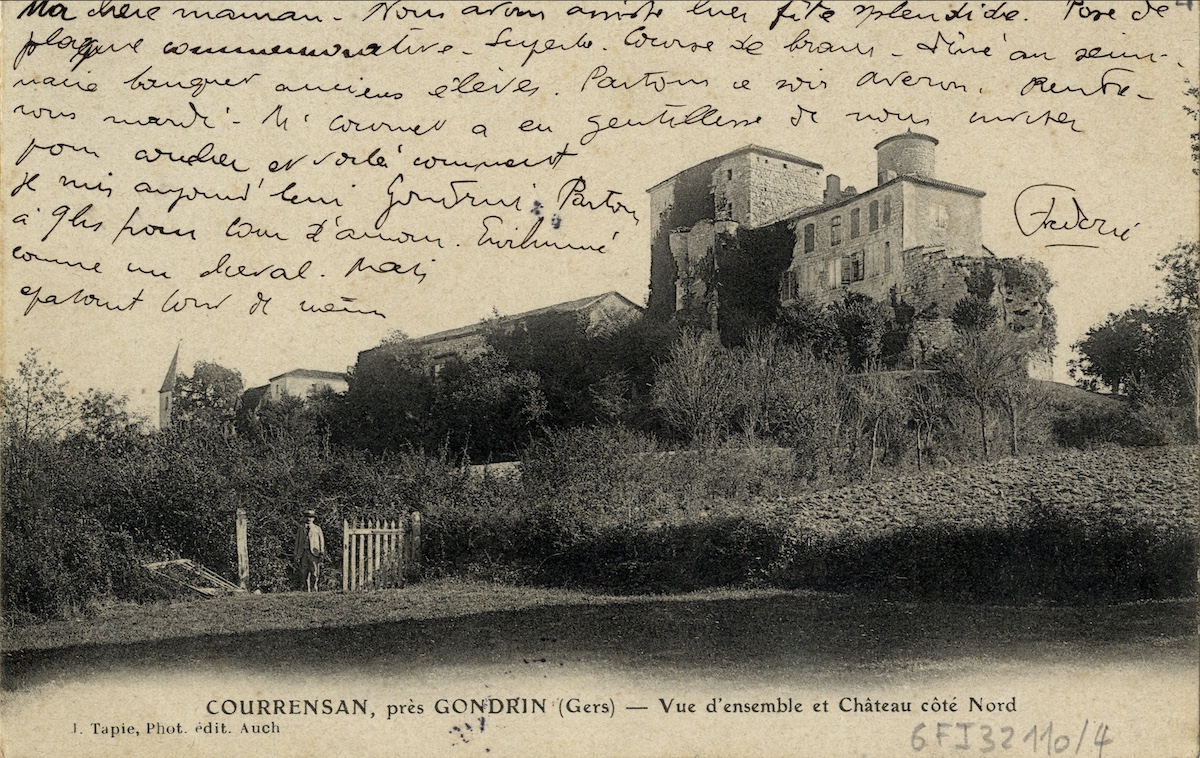 Ma chère maman - Nous avons assisté hier fête splendide. Pose de
plaque commemorative - Superbe. Course de - Dîné au semi-
naire banquet anciens élèves. Partons ce soir. Rentre-
rons mardi - Mr a eu gentillesse de nous inviter
pour coucher et voilà comment
je suis aujourd'hui Gondrin. Partons
à 9hs pour. Enrhumé
comme un cheval. Mais
épatant tout de même
Frédéric
COURRENSAN, près GONDRIN (Gers) — Vue d'ensemble et Château côté Nord
J. Tapie, Phot. édit. Auch
6FI32110/4